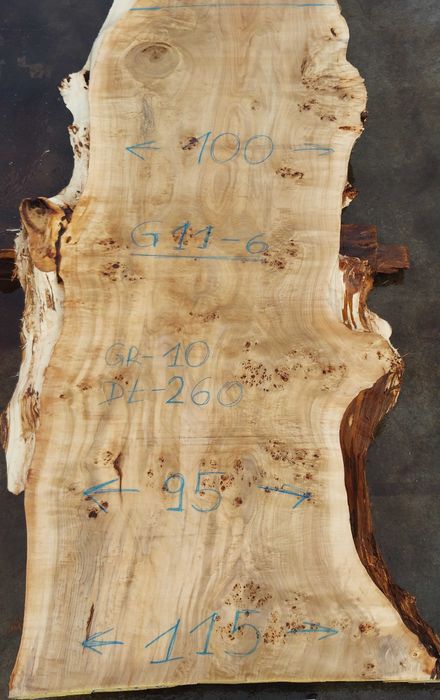 ← 100 →
G11-6
GR-10
DŁ-260
← 95 →
← 115 →